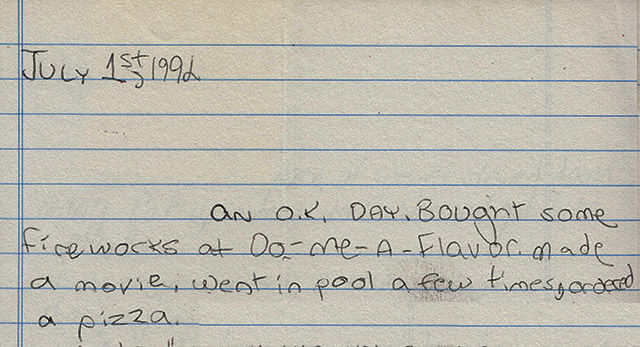 JULY 1st, 1992
AN O.K. DAY. Bought some
fireworks at Do-me-A-Flavor. made
a movie, went in pool a few times, ordered
a pizza.